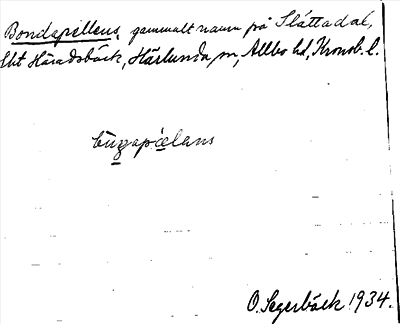 Bondapellens, gammalt namn på Slättadal,
Lht Häradsbäck, Härlunda sn, Allbo hd, Kronob. l.
O. Segerbäck 1934.